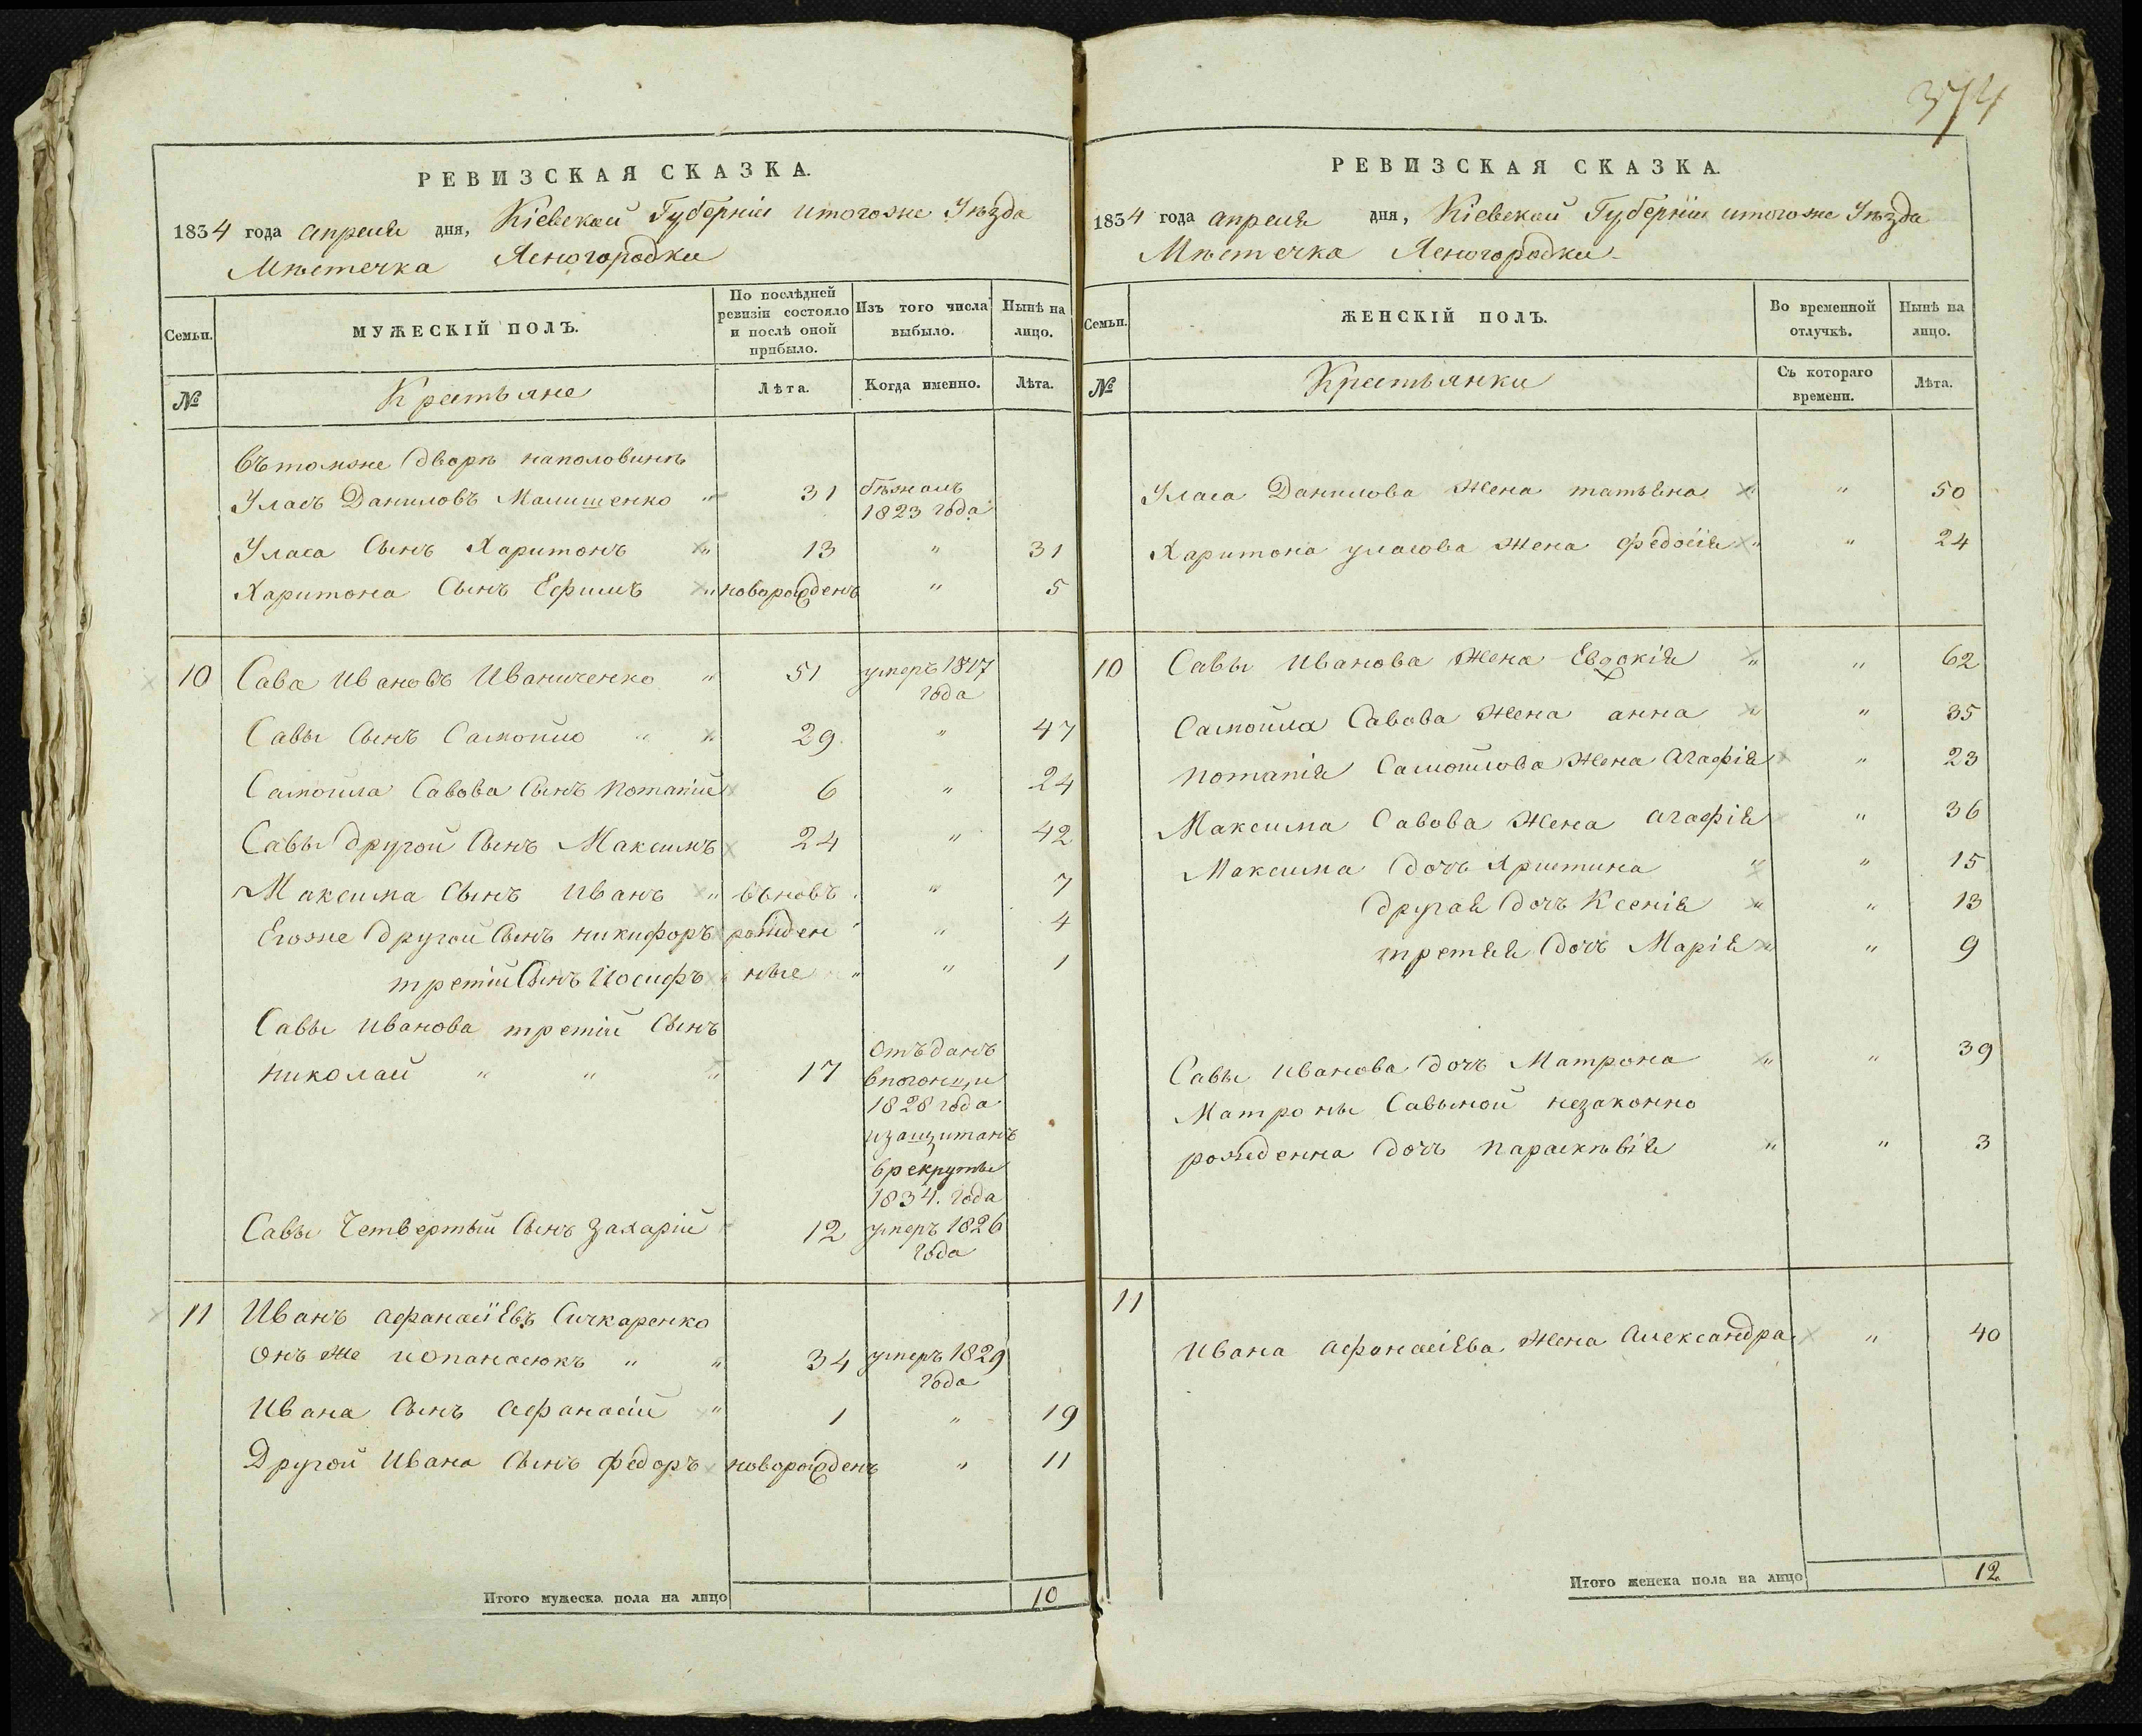 РЕВИЗСКАЯ СКАЗКА.
1834 года апреля дня, Кіевской Губерніи итогоже Уѣзда
Мѣстечка Ясногородки
Семьи.
МУЖЕСКІЙ ПОЛЪ.
По послѣдней ревизіи состояло и послѣ оной прибыло.
Изъ того числа выбыло.
Нынѣ на лицо.
№
Крестьяне
Лѣта.
Когда именно.
Лѣта.
Въ томже дворѣ наполовинѣ
Уласъ Даниловъ Малишенко " 31 бѣжалъ 1823 года
Уласа Сынъ Харитонъ " 13 " 31
Харитона Сынъ Ефимъ " новорожденъ " 5
10 Сава Ивановъ Иваниченко " 51 умеръ 1817 года
Савы Сынъ Самойло " " 29 " 47
Самойла Савова Сынъ Потапій 6 " 24
Савы другой Сынъ Максимъ 24 " 42
Максима Сынъ Иванъ " вьновъ " 7
Егоже другой Сынъ Никифоръ рожден " 4
третій Сынъ Іосифъ " ные " " 1
Савы Иванова третій Сынъ
Николай " " " 17 Отъданъ
впогонци
1828 года
изащитанъ
врекруты
1834. года
Савы Четвертый Сынъ Захарій 12 умеръ 1826 года
11 Иванъ Афанасіевъ Сичкаренко
Онъ же иопанасюкъ " " 34 умеръ 1829 года
Ивана Сынъ Афанасій " 1 " 19
Другой Ивана Сынъ Федоръ новорожденъ " 11
Итого мужеска пола на лицо 10
374
РЕВИЗСКАЯ СКАЗКА.
1834 года апреля дня, Кіевской Губерніи итогоже Уѣзда
Мѣстечка Ясногородки
Семьи.
ЖЕНСКІЙ ПОЛЪ.
Во временной отлучкѣ.
Нынѣ на лицо.
№
Крестьянки
Съ котораго времени.
Лѣта.
Уласа Данилова Жена татьяна " 50
Харитона уласова Жена Федосія " " 24
10 Савы Иванова Жена Евдокія " " 62
Самойла Савова Жена анна " " 35
Потапія Самойлова Жена Агафія " 23
Максима Савова Жена агафія " 36
Максима дочь Христина " " 15
другая дочь Ксенія " " 13
третяя дочь Марія " " 9
Савы Иванова дочь Матрона " " 39
Матроны Савыной незаконно
рожденна дочь Параскѣвія " " 3
11
Ивана Афанасіева Жена Александра " 40
Итого женска пола на лицо 12